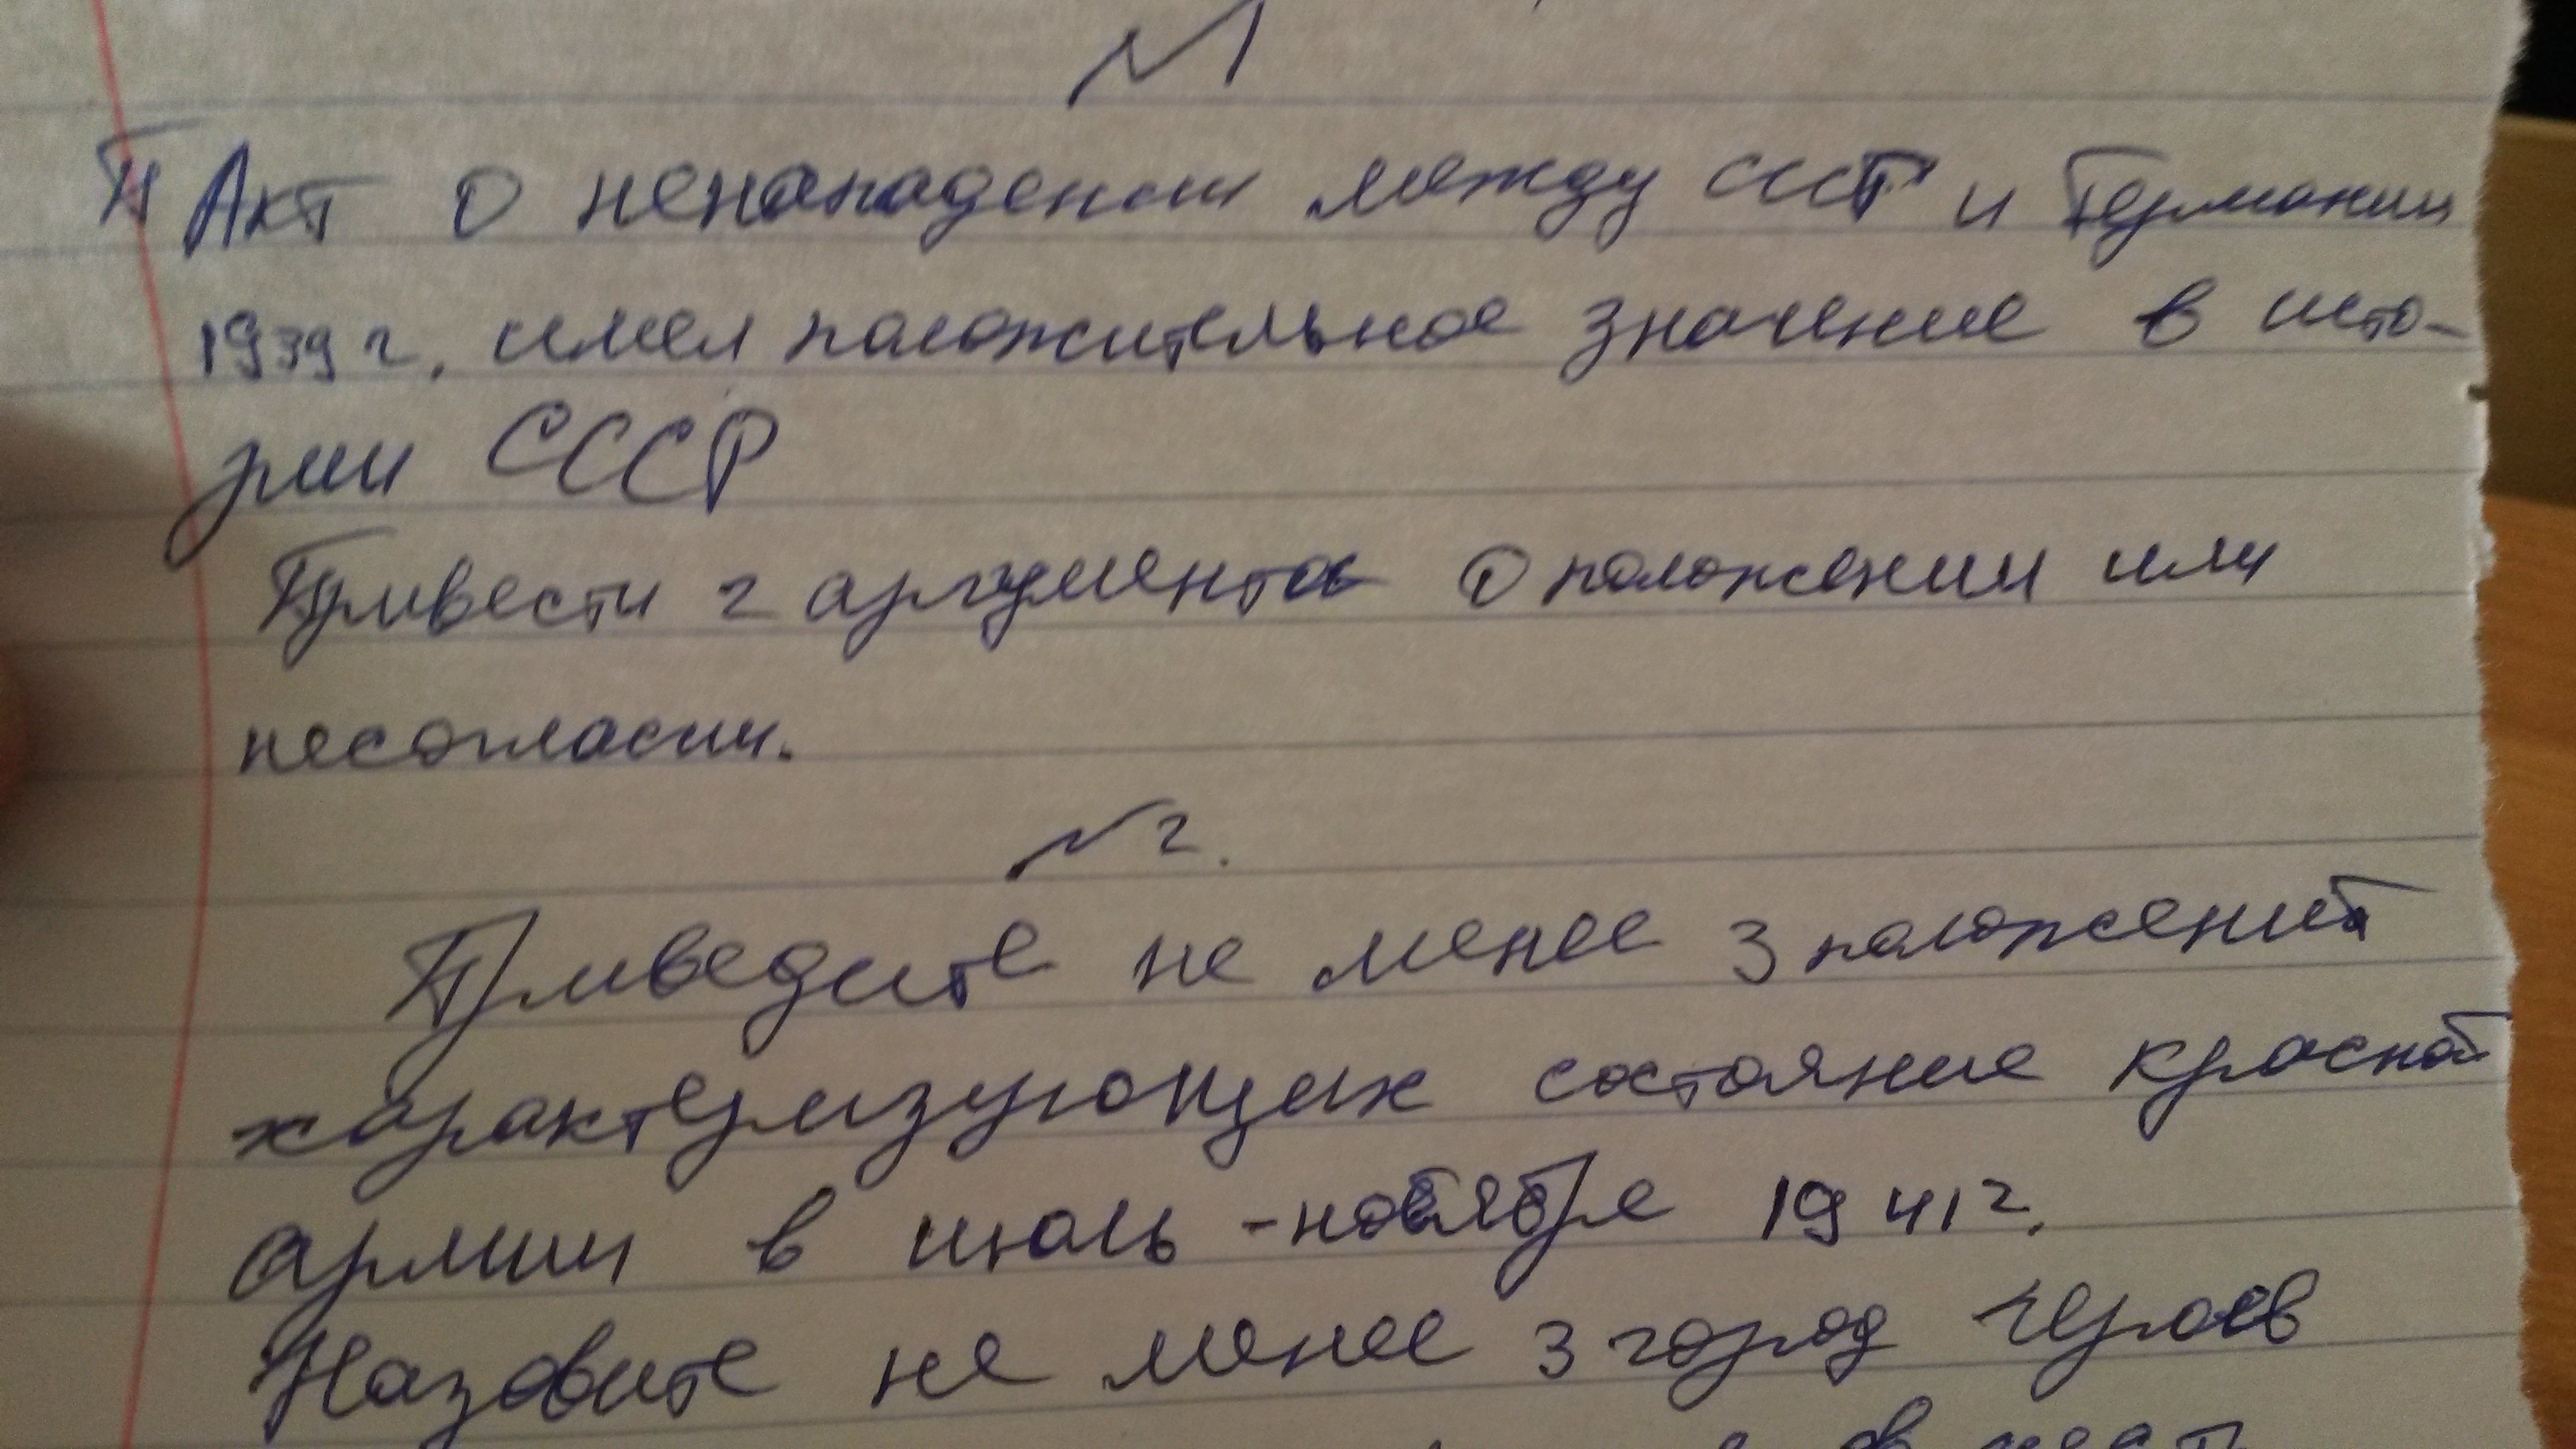 №1
П Акт о ненападении между СССР и Германии
1939 г. имел положительное значение в исто-
рии СССР
Привести 2 аргумента о положении или
несогласии.
№2.
Приведите не менее 3 положений
характеризующих состояние красной
армии в июль-ноябре 1941 г.
Назовите не менее 3 город героев